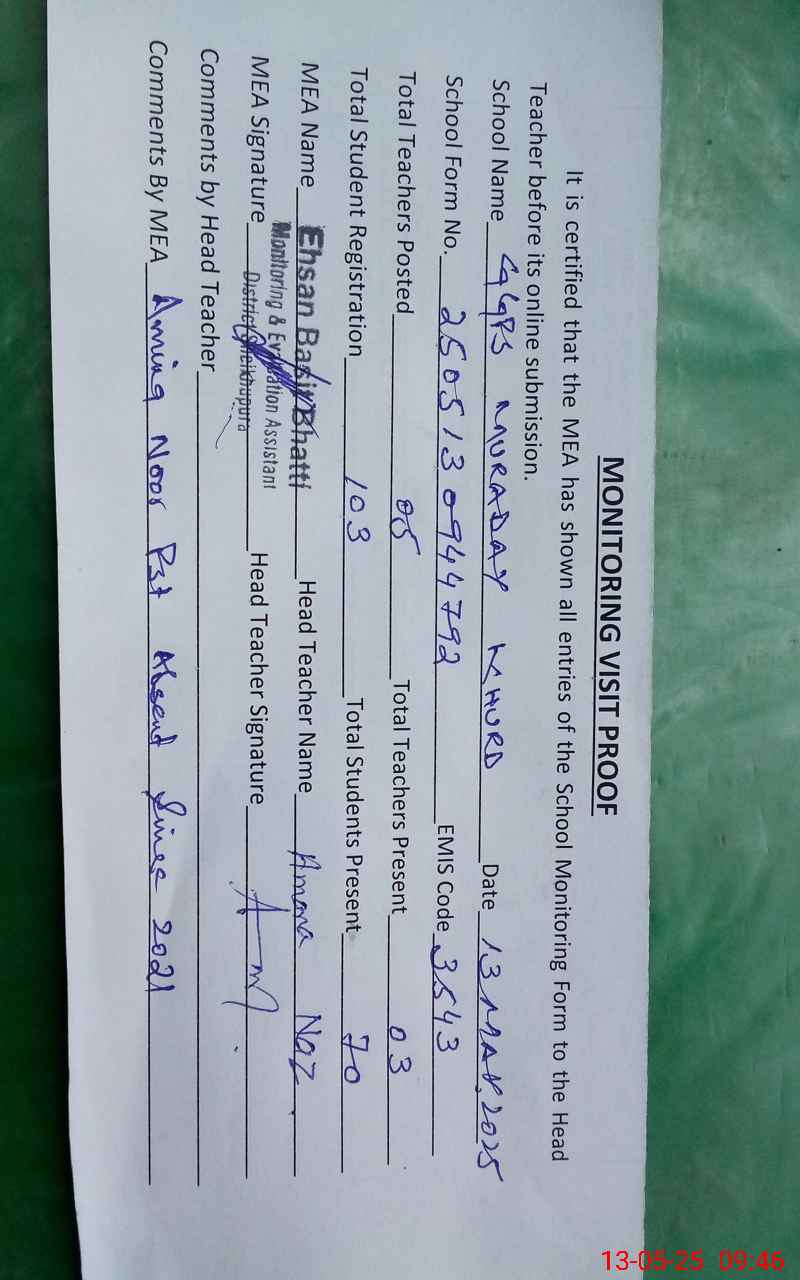 MONITORING VISIT PROOF
It is certified that the MEA has shown all entries of the School Monitoring Form to the Head
Teacher before its online submission.
School Name GGPS MURADAY KHURD Date 13 MAY, 2025
School Form No. 2505130944792 EMIS Code 3543
Total Teachers Posted 05 Total Teachers Present 03
Total Student Registration 103 Total Students Present 70
MEA Name Ehsan Basir Bhatti Head Teacher Name Amara Naz
Monitoring & Evaluation Assistant
District Sheikhupura
MEA Signature Head Teacher Signature
Comments by Head Teacher
Comments By MEA Amina Noor Pst Absent Since 2021
13-05-25 09:46